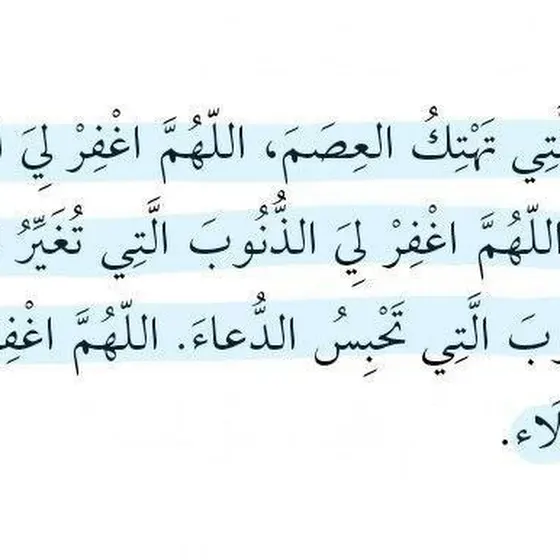 تَهْتِكُ العِصَمَ، اللّهُمَّ اغْفِرْ لِيَ
اللّهُمَّ اغْفِرْ لِيَ الذُّنُوبَ الَّتِي تُغَيِّرُ
الَّتِي تَحْبِسُ الدُّعاءَ. اللّهُمَّ